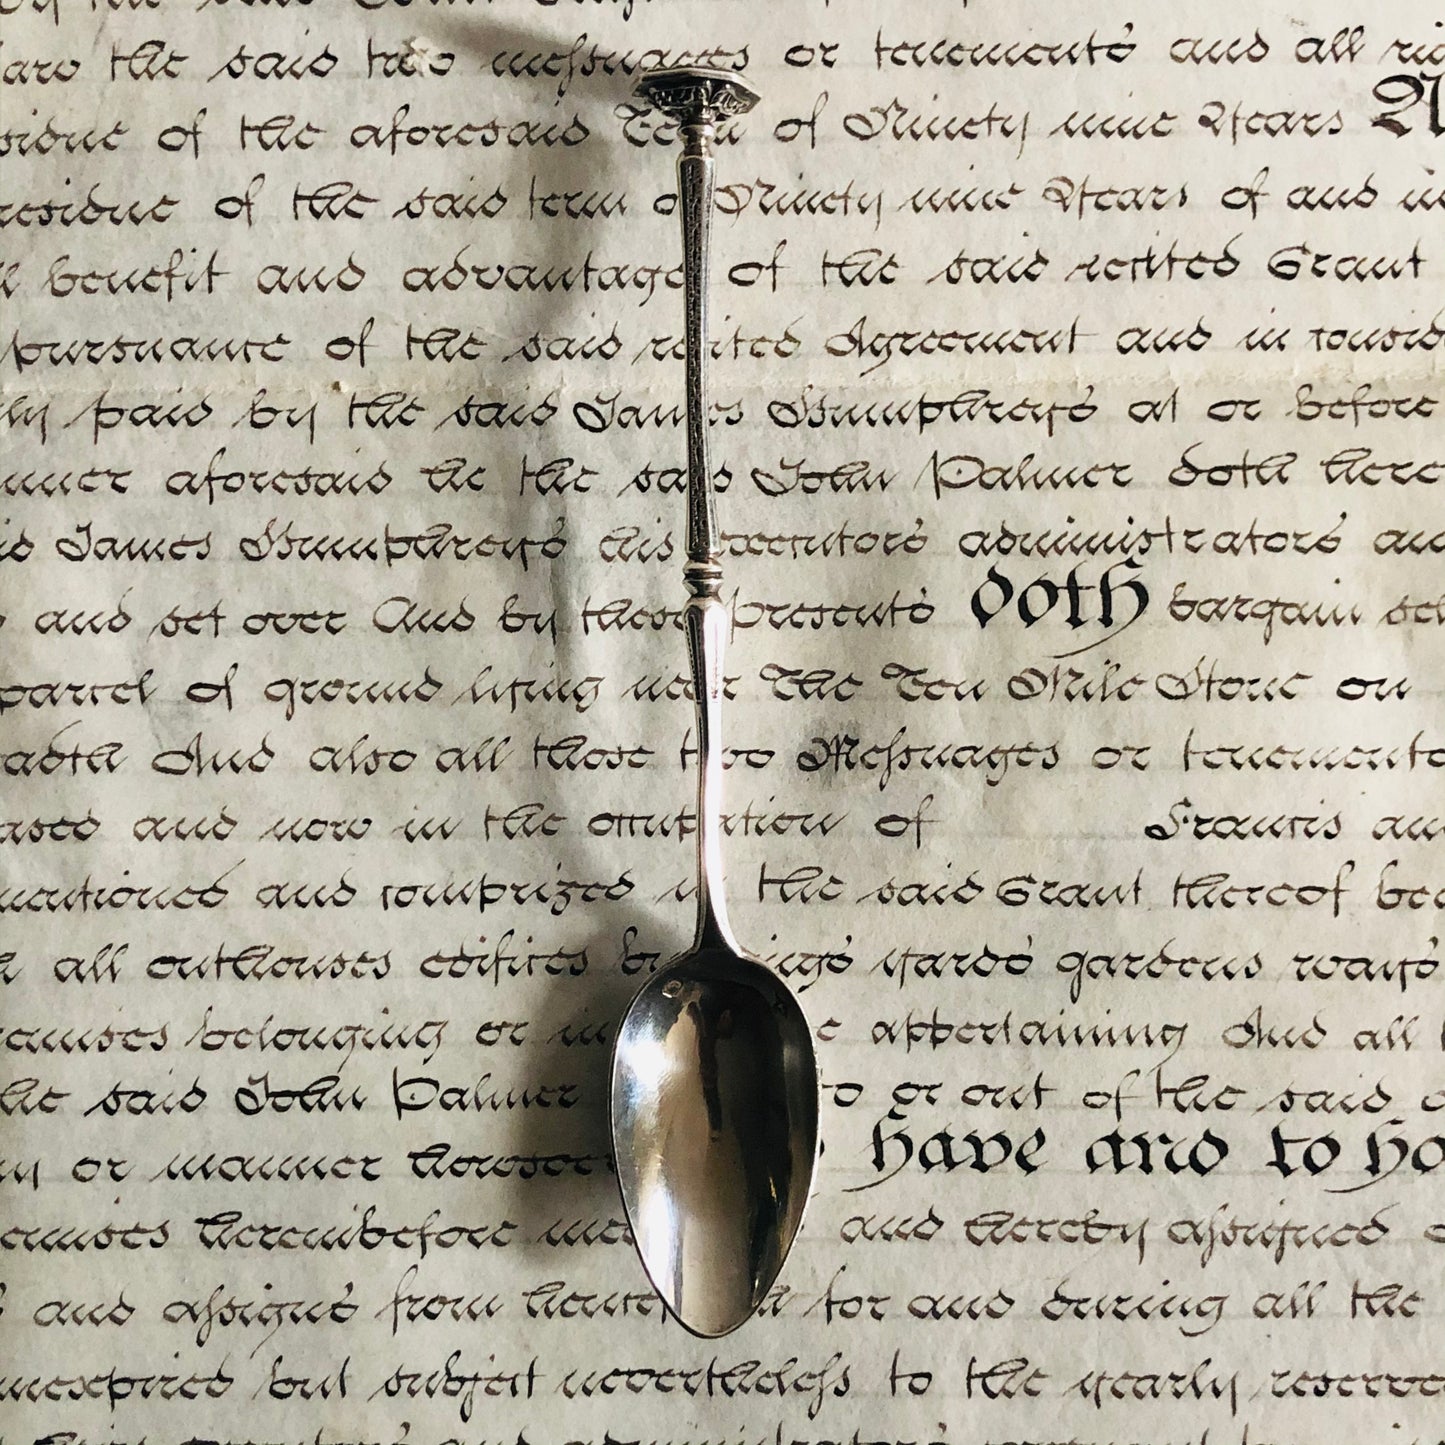 the said two messuages or tenements and all
of the aforesaid Term of Ninety nine Years
residue of the said term of Ninety nine Years of and in
benefit and advantage of the said recited Grant
pursuance of the said recited Agreement and in
paid by the said James Humphreys at or before
aforesaid he the said John Palmer doth
James Humphreys his executors administrators
and set over And by these presents doth bargain
parcel of ground lying near The Ten Mile Stone on
And also all those two Messuages or tenements
and now in the occupation of Francis
and comprized in the said Grant thereof
all outhouses edifices yards gardens ways
belonging or in appertaining And all
the said John Palmer or out of the said
or manner howsoever have and to
hereinbefore and hereby assigned
and assigns from for and during all the
unexpired but subject nevertheless to the yearly
and administrators